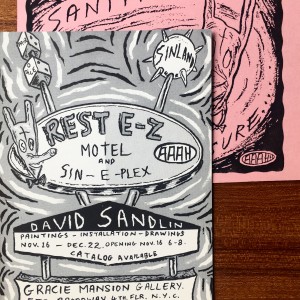 SINLAND
REST E-Z
MOTEL
AND
SIN-E-PLEX
AAAH
DAVID SANDLIN
PAINTINGS - INSTALLATION - DRAWINGS
NOV. 16 - DEC. 22. OPENING NOV. 16 6-8.
CATALOG AVAILABLE
GRACIE MANSION GALLERY.
BROADWAY 4TH FLR. N.Y.C.